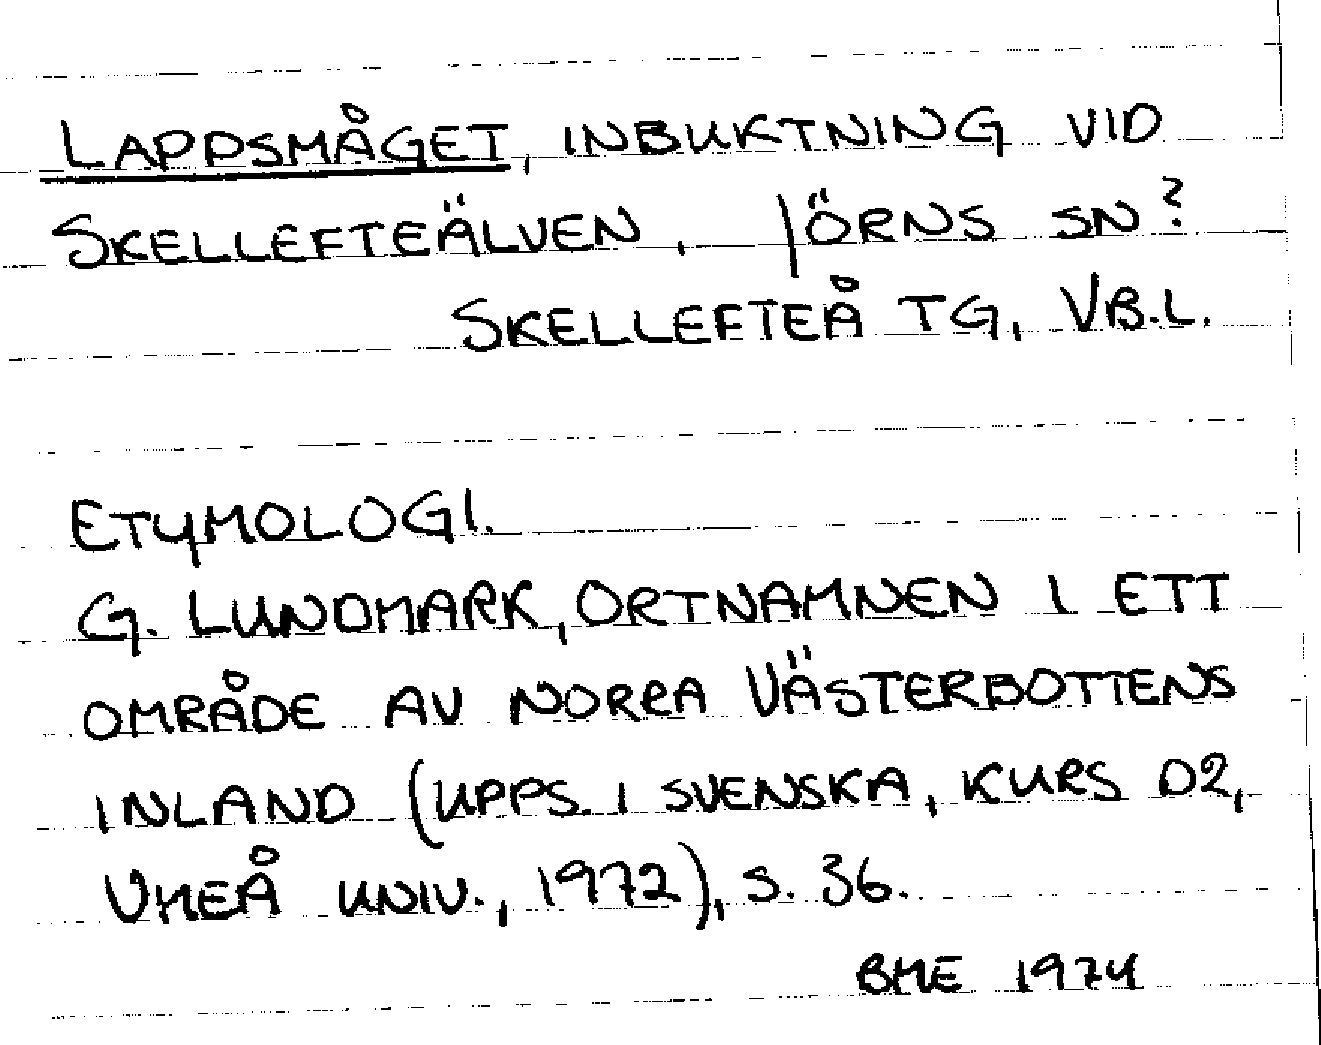 LAPPSMÅGET, INBUKTNING VID
SKELLEFTEÄLVEN, JÖRNS SN?
SKELLEFTEÅ TG, VB.L.
ETYMOLOGI.
G. LUNDMARK, ORTNAMNEN I ETT
OMRÅDE AV NORRA VÄSTERBOTTENS
INLAND (UPPS. I SVENSKA, KURS D2,
UMEÅ UNIV., 1972), S. 36.
BME 1974